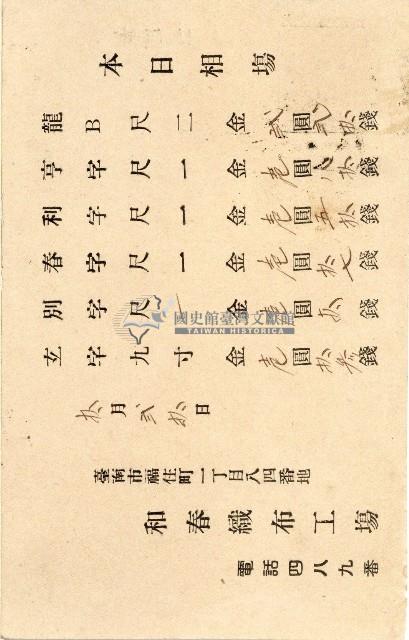 本日相塲
龍B尺二 金貳圓貳拾錢
亨字尺一 金壱圓八拾錢
利字尺一 金壱圓五拾錢
春字尺一 金壱圓拾七錢
別字尺一 金圓拾錢
國史館臺灣文獻館
TAIWAN HISTORICA
玄字九寸 金壱圓拾参錢
拾月貳拾日
臺南市福住町一丁目八四番地
和春織布工塲
電話四八九番